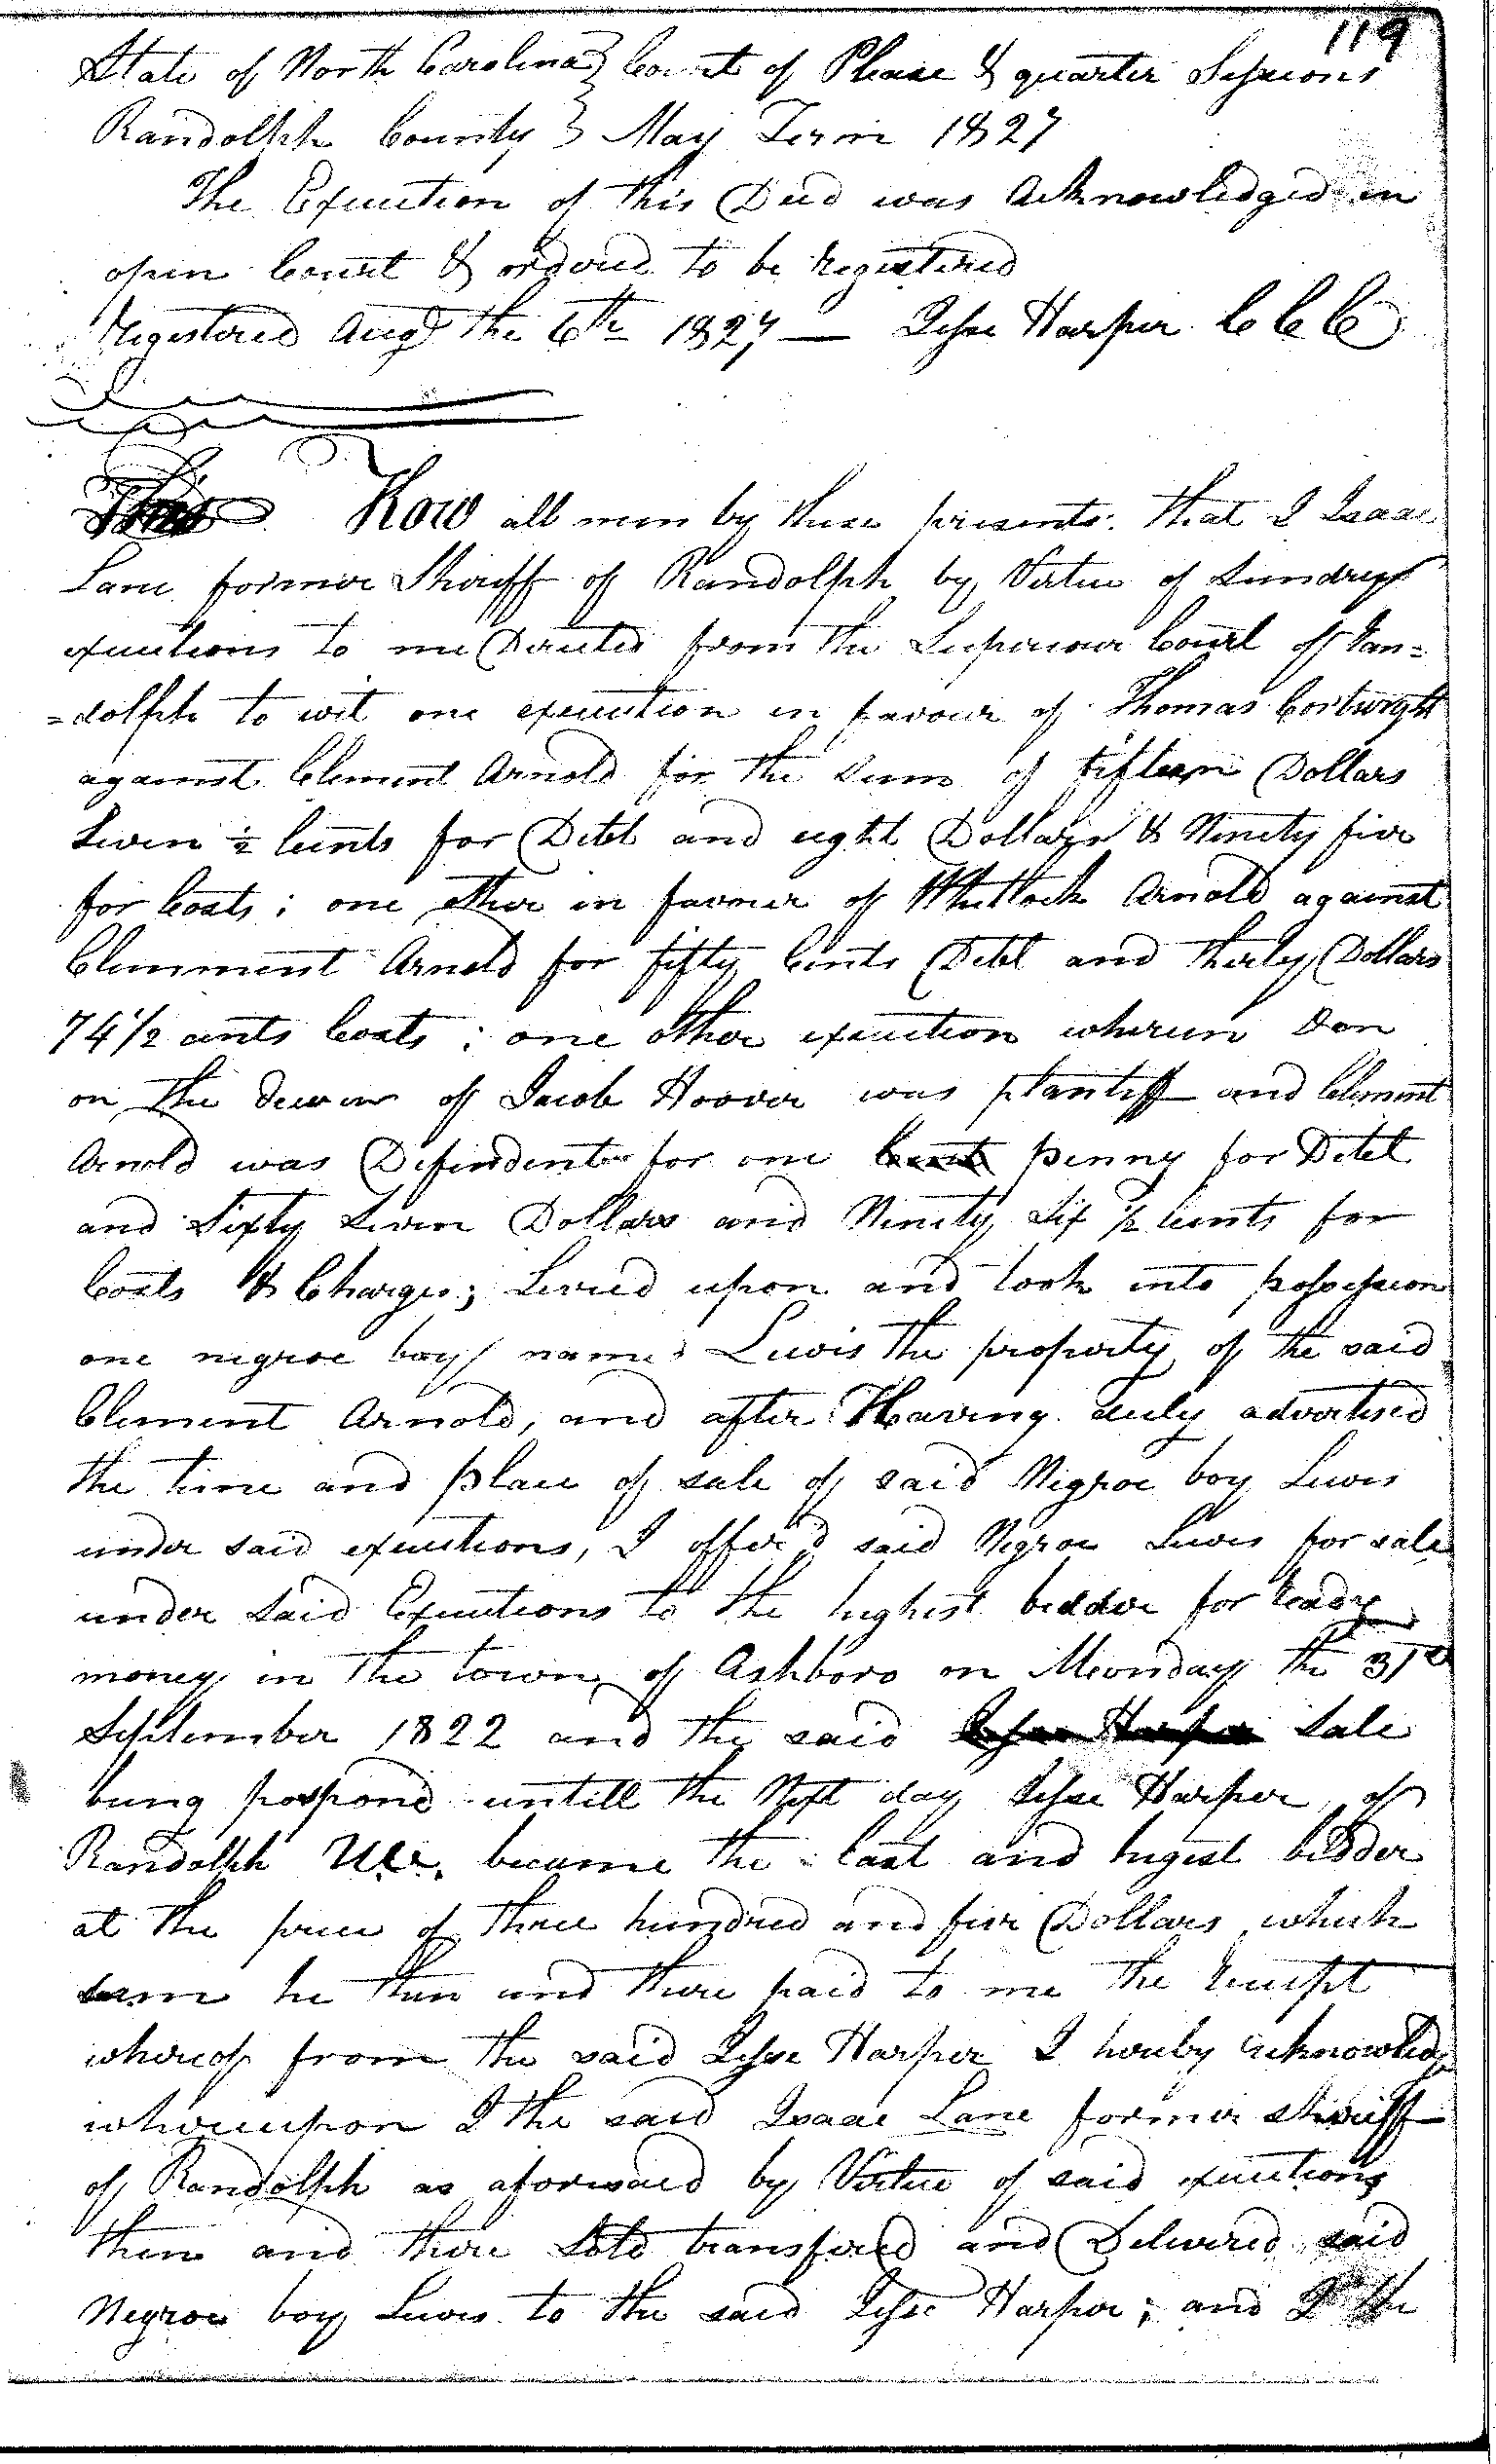 119
State of North Carolina } Court of Please & quarter Sessions
Randolph County } May Term 1827
The Execution of this Deed was Acknowledged in
open Court & ordered to be registered
Registered Augt the 6th 1827 — Jesse Harper C C C
Know all men by these presents that I Isaac
Lane former Sheriff of Randolph by Virtue of Sundry
executions to me Directed from the Superiour Court of Ran=
=dolph to wit one execution in favour of Thomas Cortwright
against Clement Arnold for the Sum of fifteen Dollars
Seven ½ Cents for Debt and eight Dollars & Ninety five
for Costs ; one other in favour of Whitlock Arnold against
Clemment Arnold for fifty Cents Debt and thirty Dollars
74 1/2 cents Costs ; one other execution wherein Den
on the demise of Jacob Hoover was plantiff and Clement
Arnold was Defendent for one Cent penny for Debt
and Sixty Seven Dollars and Ninety Six ½ Cents for
Costs & Charges; Levied upon and took into possession
one negroe boy named Lewis the property of the said
Clement Arnold, and after Having duly advertised
the time and place of sale of said Negroe boy Lewis
under said executions, I offer'd said Negroe Lewis for sale
under Said Executions to the highest bidder for ready
money in the town of Ashboro on Monday the 31st
September 1822 and the said Jesse Harper Sale
being pospond untill the Next day Jesse Harper of
Randolph became the last and higest bidder
at the price of three hundred and five Dollars which
sum he then and there paid to me the receipt
whereof from the said Jesse Harper I hereby acknowledge
whereupon I the said Isaac Lane former sheriff
of Randolph as aforesaid by Virtue of said executions
then and there Sold transfered and Delivered said
Negroe boy Lewis to the said Jesse Harper ; and I the